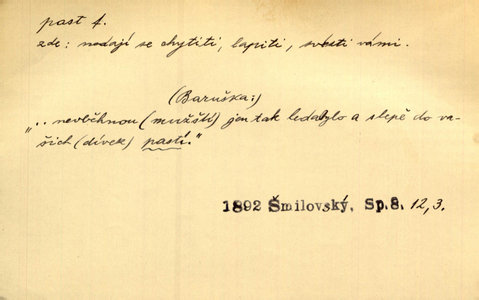 past f.
zde: nedají se chytiti, lapiti, svésti vámi.
(Baruška:)
".. nevběhnou (mužští) jen tak ledabylo a slepě do va-
šich (dívek) pastí."
1892 Šmilovský, Sp.8. 12,3.